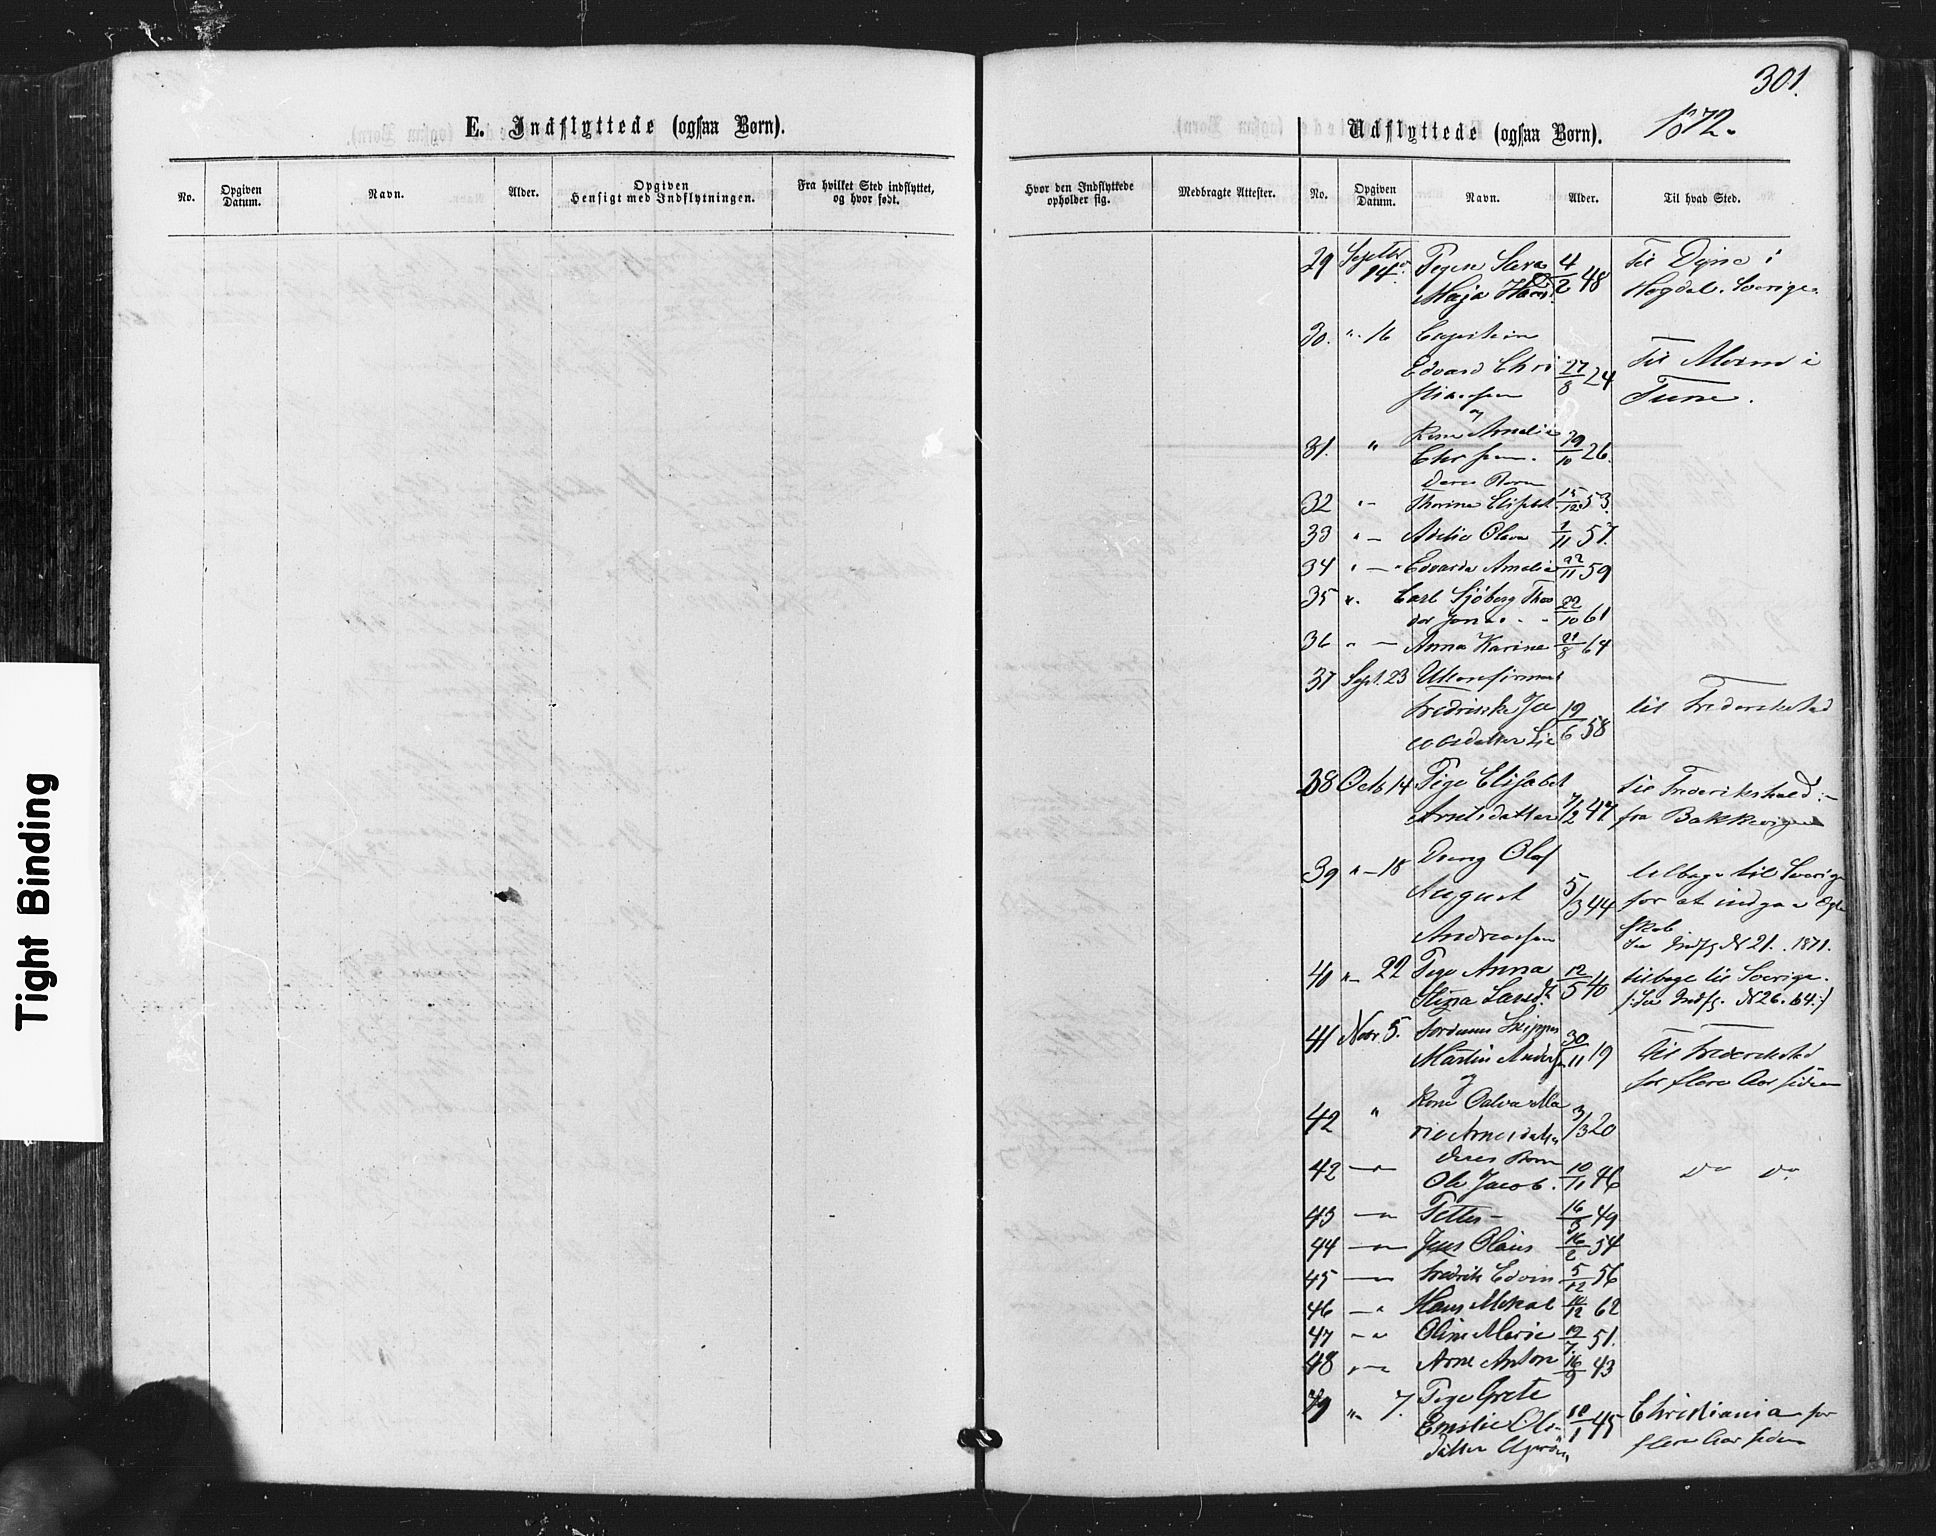 301.
E. Indflyttede (ogsaa Børn).
No.
Opgiven Datum.
Navn.
Alder.
Opgiven Hensigt med Indflytningen.
Fra hvilket Sted indflyttet, og hvor født.
Hvor den Indflyttede opholder sig.
Medbragte Attester.
Udflyttede (ogsaa Børn). 1872.
No.
Opgiven Datum.
Navn.
Alder.
Til hvad Sted.
29 Septbr 14 Pigen 4/2 48 til Dyne i
Maja Hogdal. Sverige.
30. " 16
Edvard Chri 27/8 24 til i
stiansen Tune.
og
31. " Kone Amalia 29/10 26.
Chr sen.
deres Børn
32 " - Thorine Elisabet 15/12 53.
33 " - Olava 1/11 57.
34 " - Edvarda Amalia 22/11 59
35 ". Carl Sjöberg Theo 22/10 61
dor
36 " - Anna Karine 21/8 64
37 Sept. 23 Ukonfirmert
Fredrikke Ja 19/6 58 til Frederikstad
cobsdatter Lie
38 Octb 14 Pige Elisabet til Frederikshald.
datter 7/2 47 fra Bakke
39 " - 18 Dreng Olof tilbage til Sverige
August 5/3 44 for at indgaa Ægte
Andreasen skab
see Indfl N 21. 1871.
40 " - 22 Pige Anna 12/5 40 tilbage til Sverige.
Stina Larsdt. /: see Indfl. N 26. 64 :/
41 Novr 5. Skipper 30/11 19 til Frederikstad
Martin Andersen
og for flere Aar siden
42 " Kone Oalva Ma 3/3 20
rie Arnesdatter
deres Børn
42 - " Ole Jacob. 10/11 46 do do
43 - " Petter - 16/5 49
44 - " Jens Olaus 16/2 54
45 - " Fredrik Edvin 5/12 56
46 - " Hans Mikal 10/12 62
47 - " Oline Marie 12/7 51.
48 - " Arne Anton 16/9 43
49 " 7. Pige Grete
Emilie Ols- 10/1 45 Christiania for
datter flere Aar siden
Tight Binding